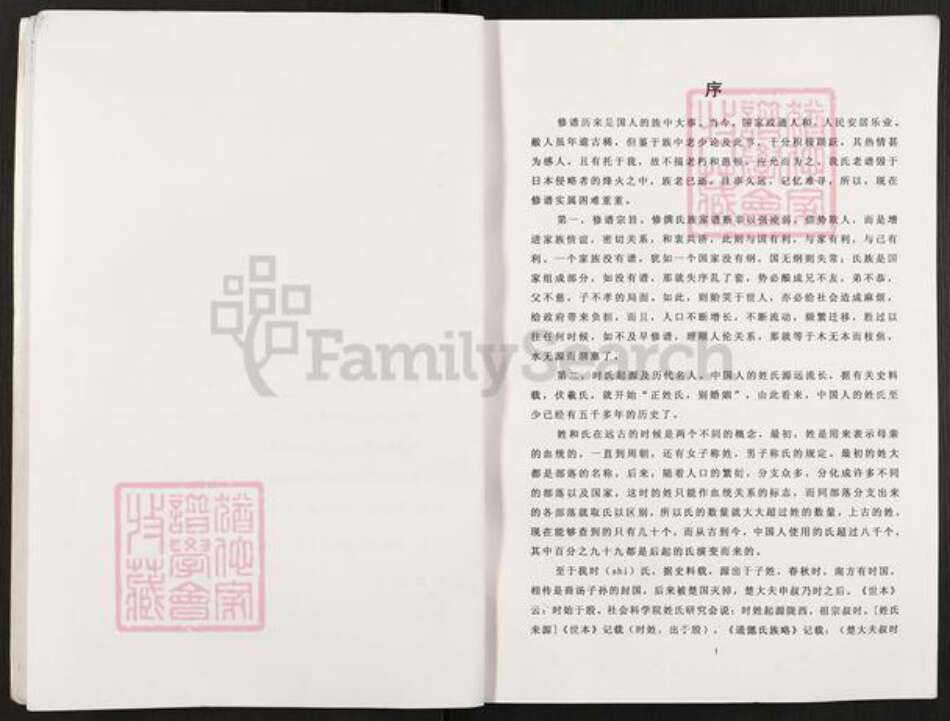 序
修谱历来是国人的族中大事。当今，国家政通人和，人民安居乐业。
敝人虽年逾古稀，但鉴于族中老少论及此事，十分积极踊跃，其热情甚
为感人，且有托于我，故不揣老朽和愚顿，应允而为之。我氏老谱毁于
日本侵略者的烽火之中，族老已逝，往事久远，记忆难寻，所以，现在
修谱实属困难重重。
第一，修谱宗旨。修撰氏族家谱断非以强凌弱，借势欺人，而是增
进家族情谊，密切关系，和衷共济，此则与国有利，与家有利，与己有
利。一个家族没有谱，犹如一个国家没有纲。国无纲则失常；氏族是国
家组成部分，如没有谱，那就失序乱了套，势必酿成兄不友，弟不恭，
父不慈，子不孝的局面。如此，则贻笑于世人，亦必给社会造成麻烦，
给政府带来负担。而且，人口不断增长，不断流动，频繁迁移，胜过以
往任何时候，如不及早修谱，理顺人伦关系，那就等于木无本而枝焦，
水无源而溯塞了。
第二，时氏起源及历代名人。中国人的姓氏源远流长，据有关史料
载，伏羲氏，就开始“正姓氏，别婚姻”，由此看来，中国人的姓氏至
少已经有五千多年的历史了。
姓和氏在远古的时候是两个不同的概念，最初，姓是用来表示母亲
的血统的，一直到周朝，还有女子称姓，男子称氏的规定。最初的姓大
都是部落的名称，后来，随着人口的繁衍，分支众多，分化成许多不同
的部落以及国家，这时的姓只能作血统关系的标志，而同部落分支出来
的各部落就取氏以区别，所以氏的数量就大大超过姓的数量，上古的姓，
现在能够查到的只有几十个，而从古到今，中国人使用的氏超过八千个，
其中百分之九十九都是后起的氏演变而来的。
至于我时（shi）氏，据史料载，源出于子姓，春秋时，南方有时国，
相传是商汤子孙的封国，后来被楚国灭掉，楚大夫申叔乃时之后。《世本》
云：时始于殷。社会科学院姓氏研究会说：时姓起源陇西，祖宗叔时。[姓氏
来源]《世本》记载（时姓，出于殷）。《通志氏族略》记载：（楚大夫叔时
1
FamilySearch
犹他家
谱学会
收藏
犹他家
谱学会
收藏